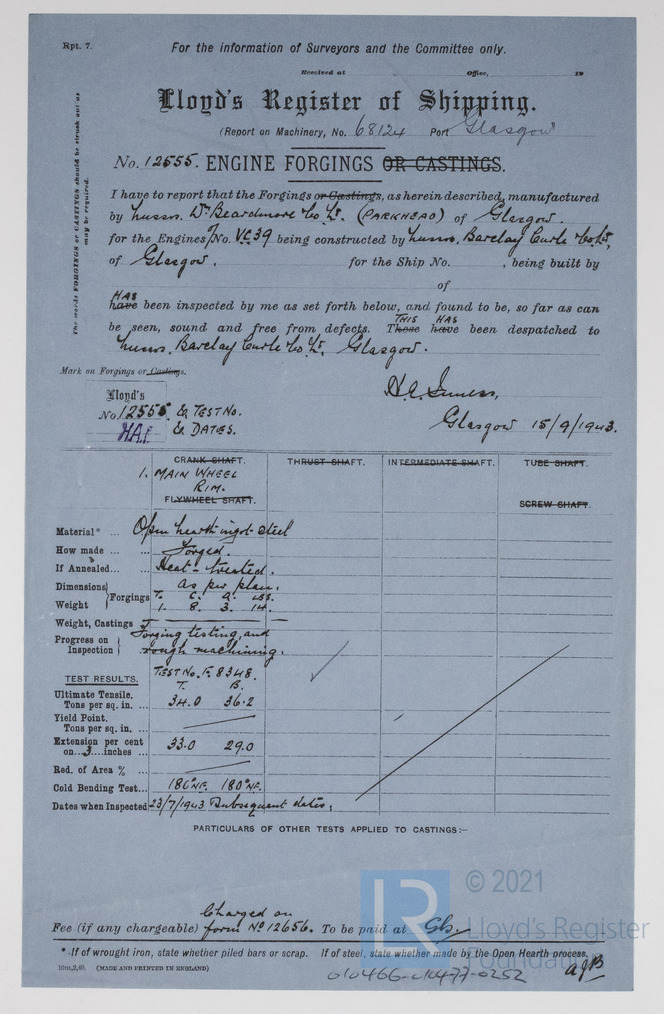 Rpt. 7.
For the information of Surveyors and the Committee only.
Received at Office, 19
Lloyd's Register of Shipping.
(Report on Machinery, No. 68124 Port Glasgow
No. 12555. ENGINE FORGINGS OR CASTINGS.
The words FORGINGS or CASTINGS should be struck out as
may be required.
I have to report that the Forgings or Castings, as herein described, manufactured
by Messrs. Wm Beardmore & Co Ld. (PARKHEAD) of Glasgow.
for the Engines No. VC39 being constructed by Messrs. Barclay Curle & Co Ld,
of Glasgow. for the Ship No. , being built by
of
HAS
have been inspected by me as set forth below, and found to be, so far as can
THIS HAS
be seen, sound and free from defects. These have been despatched to
Messrs. Barclay Curle & Co. Ld. Glasgow.
Mark on Forgings or Castings.
Lloyd's
No 12555 & TEST No.
HAI & DATES.
H.A. Inness,
Glasgow 15/9/1943.
CRANK SHAFT. THRUST SHAFT. INTERMEDIATE SHAFT. TUBE SHAFT.
1. MAIN WHEEL
RIM.
FLYWHEEL SHAFT. SCREW SHAFT.
Material* ... Open hearth ingot steel
How made ... ... Forged.
If Annealed... ... Heat-treated.
Dimensions as per plan.
Forgings T. C. Q. LBS.
Weight 1. 8. 3. 14.
Weight, Castings
Progress on Forging testing, and
Inspection rough machining.
TEST RESULTS. TEST No. F. 8348.
T. B.
Ultimate Tensile.
Tons per sq. in. ... 34.0 36.2
Yield Point.
Tons per sq. in. ...
Extension per cent
on...3...inches ... 33.0 29.0
Red. of Area % ...
Cold Bending Test... 180° NF. 180° NF.
Dates when Inspected 23/7/1943 Subsequent dates,
PARTICULARS OF OTHER TESTS APPLIED TO CASTINGS:—
Charged on
Fee (if any chargeable) form No 12656. To be paid at Gls.
* If of wrought iron, state whether piled bars or scrap. If of steel, state whether made by the Open Hearth process.
10m,2,40. (MADE AND PRINTED IN ENGLAND)
010466-010477-0252
LR
© 2021
Lloyd's Register
Foundation